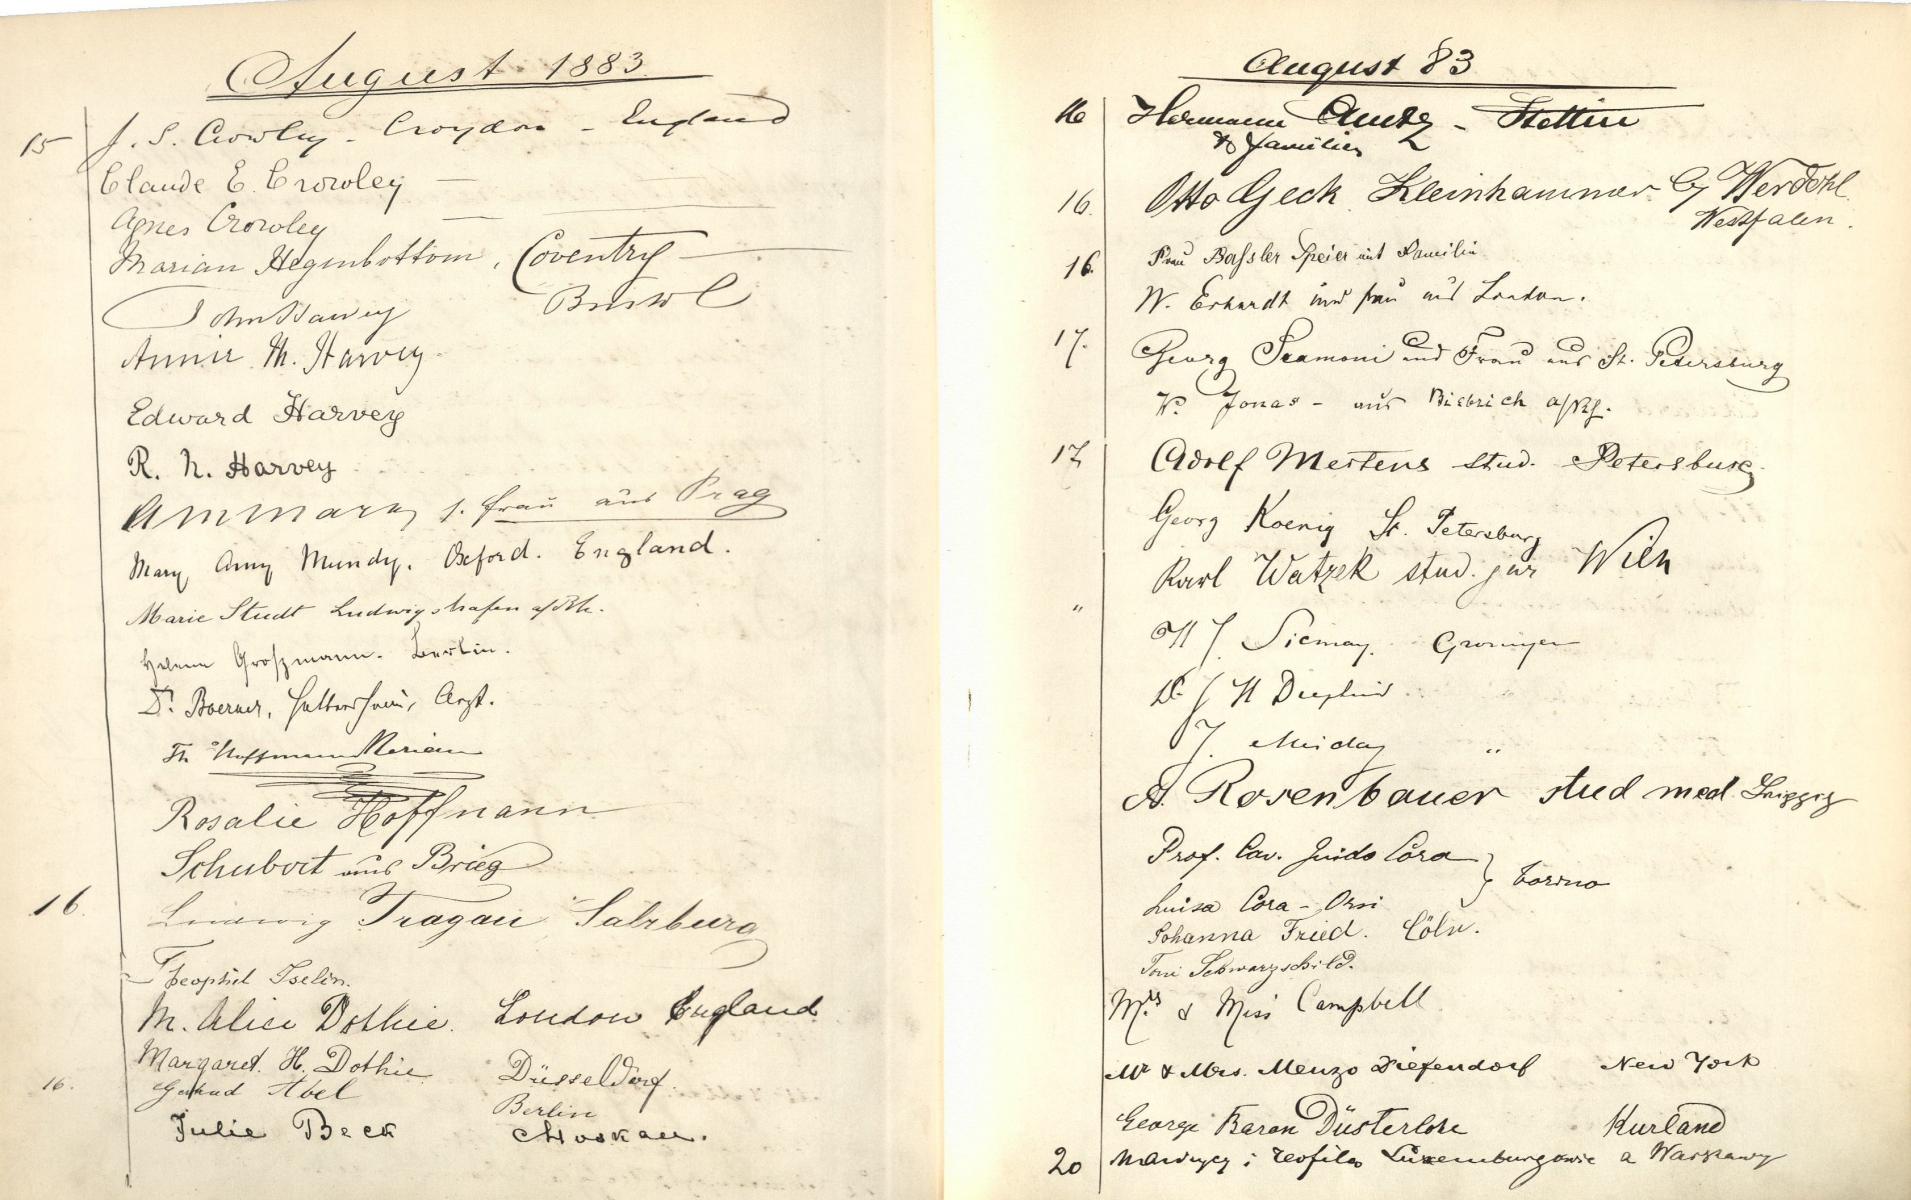 August 1883
15 J. S. Crowley - Croydon - England
Claude E. Crowley —
Agnes Crowley —
Marian Heginbottom, Coventry —
John Harvey Bristol
Annie M. Harvey.
Edward Harvey
R. N. Harvey
frau aus Prag
Mary Amy Mundy. Oxford. England.
Marie Studt Ludwigshafen a/Rh.
Helene Großmann. Berlin.
Dr. Boerner, Arzt.
Th. Hoffmann Merian
Rosalie Hoffmann
Schubert aus Brieg
16. Ludwig Tragau Salzburg
Theophil Iselin.
M. Alice Dothie. London England.
Margaret. H. Dothie
Düsseldorf.
16. Gertrud Abel
Berlin
Julie Beck Moskau.
August 83
16 Hermann - Stettin
& Familie
16. Otto Geck Kleinhammer by Werdohl
Westfalen.
16. Frau Bassler Speier mit Familie
W. Erhardt und frau aus London.
17. Georg Scamoni und Frau aus St. Petersburg
W. Jonas - aus Biebrich a/Rh.
17 Adolf Mertens stud. Petersburg.
Georg Koenig St. Petersburg
Karl Watzek stud. jur Wien
" Groningen
"
A. Rosenbauer stud med. Leipzig
Prof. Cav. Guido Cora
} Torino
Luisa Cora - Orsi
Johanna Fried. Cöln.
Toni Schwarzschild.
Mrs & Miss Campbell
Mr & Mrs. Menzo Diefendorf New York
George Baron Düsterlohe Kurland
20 Maurycy i Teofila Luxemburgowie a Warszawy